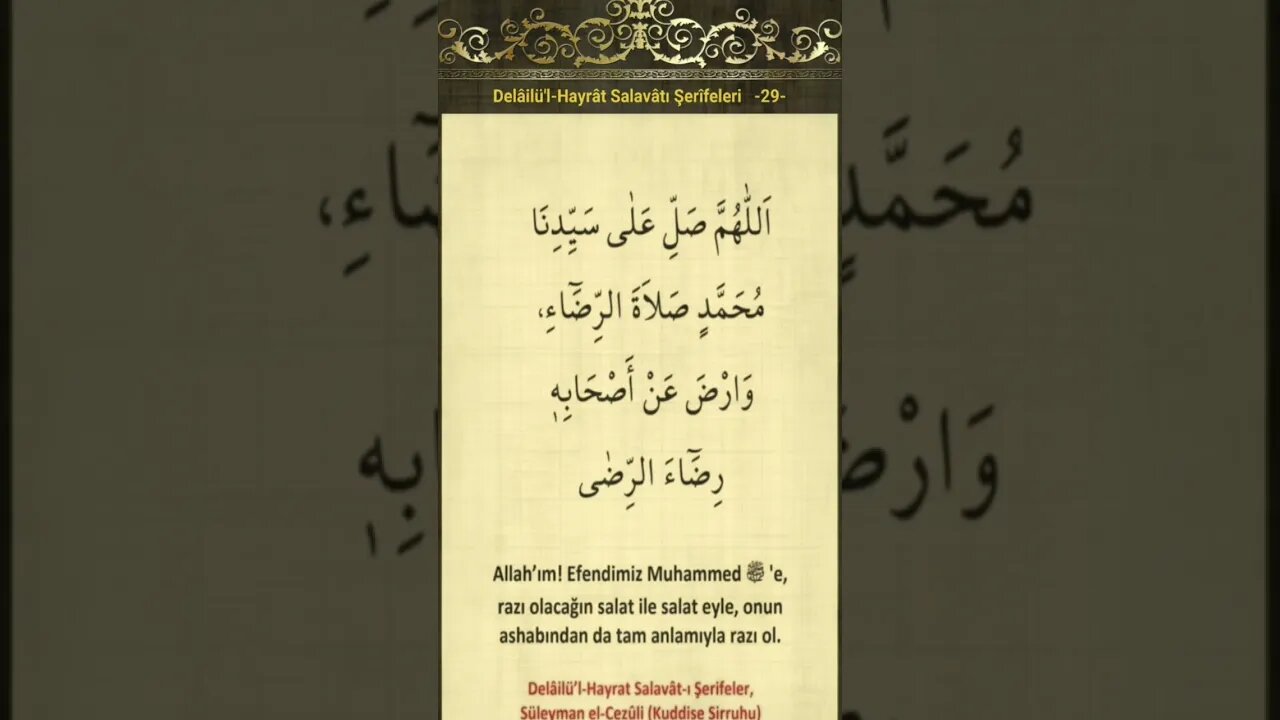 Delâilü'l-Hayrât Salavâtı Şerîfeleri -29-
اَللّٰهُمَّ صَلِّ عَلٰى سَيِّدِنَا
مُحَمَّدٍ صَلاَةَ الرِّضَٓاءِ،
وَارْضَ عَنْ أَصْحَابِهٖ
رِضَٓاءَ الرِّضٰى
Allah'ım! Efendimiz Muhammed ﷺ 'e,
razı olacağın salat ile salat eyle, onun
ashabından da tam anlamıyla razı ol.
Delâilü'l-Hayrat Salavât-ı Şerifeler,
Süleyman el-Cezûli (Kuddise Sirruhu)